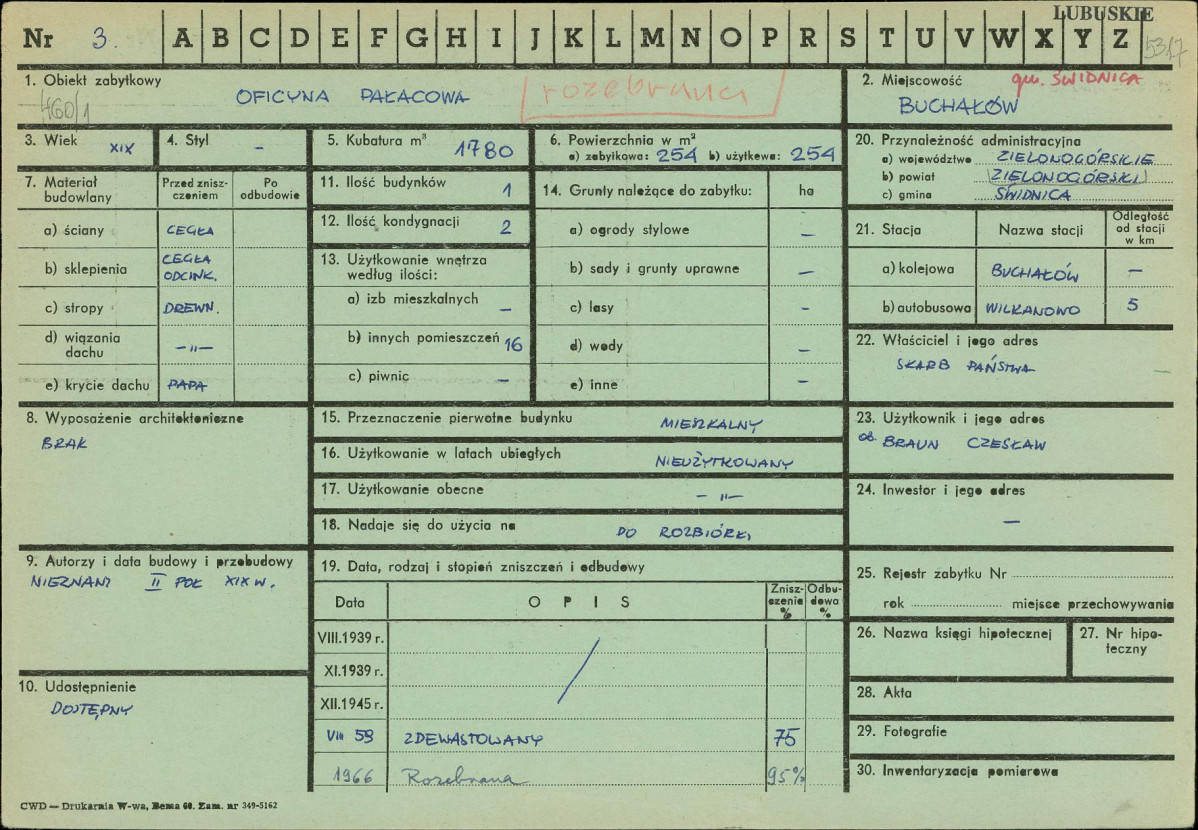 LUBUSKIE
Nr 3. A B C D E F G H I J K L M N O P R S T U V W X Y Z
5317
1. Obiekt zabytkowy
460/1
OFICYNA PAŁACOWA
rozebrana
2. Miejscowość gm. ŚWIDNICA
BUCHAŁÓW
3. Wiek XIX
4. Styl –
5. Kubatura m³ 1780
6. Powierzchnia w m²
a) zabytkowa: 254 b) użytkowa: 254
20. Przynależność administracyjna
a) województwo ZIELONOGÓRSKIE
b) powiat (ZIELONOGÓRSKI)
c) gmina ŚWIDNICA
7. Materiał budowlany
Przed zniszczeniem
Po odbudowie
a) ściany CEGŁA
b) sklepienia CEGŁA ODCINK.
c) stropy DREWN.
d) wiązania dachu –"–
e) krycie dachu PAPA
11. Ilość budynków 1
12. Ilość kondygnacji 2
13. Użytkowanie wnętrza według ilości:
a) izb mieszkalnych –
b) innych pomieszczeń 16
c) piwnic –
14. Grunty należące do zabytku: ha
a) ogrody stylowe –
b) sady i grunty uprawne –
c) lasy –
d) wody –
e) inne –
21. Stacja
Nazwa stacji
Odległość od stacji w km
a) kolejowa BUCHAŁÓW –
b) autobusowa WILKANOWO 5
22. Właściciel i jego adres
SKARB PAŃSTWA
8. Wyposażenie architektoniczne
BRAK
15. Przeznaczenie pierwotne budynku MIESZKALNY
16. Użytkowanie w latach ubiegłych NIEUŻYTKOWANY
17. Użytkowanie obecne –"–
18. Nadaje się do użycia na DO ROZBIÓRKI
23. Użytkownik i jego adres
ob. BRAUN CZESŁAW
24. Inwestor i jego adres
–
9. Autorzy i data budowy i przebudowy
NIEZNANI II POŁ XIX W.
10. Udostępnienie
DOSTĘPNY
19. Data, rodzaj i stopień zniszczeń i odbudowy
Data
OPIS
Zniszczenie %
Odbudowa %
VIII.1939 r.
XI.1939 r.
XII.1945 r.
VIII 59 ZDEWASTOWANY 75
1966 Rozebrana 95%
25. Rejestr zabytku Nr
rok miejsce przechowywania
26. Nazwa księgi hipotecznej
27. Nr hipoteczny
28. Akta
29. Fotografie
30. Inwentaryzacja pomiarowa
CWD — Drukarnia W-wa, Bema 60. Zam. nr 349-5162